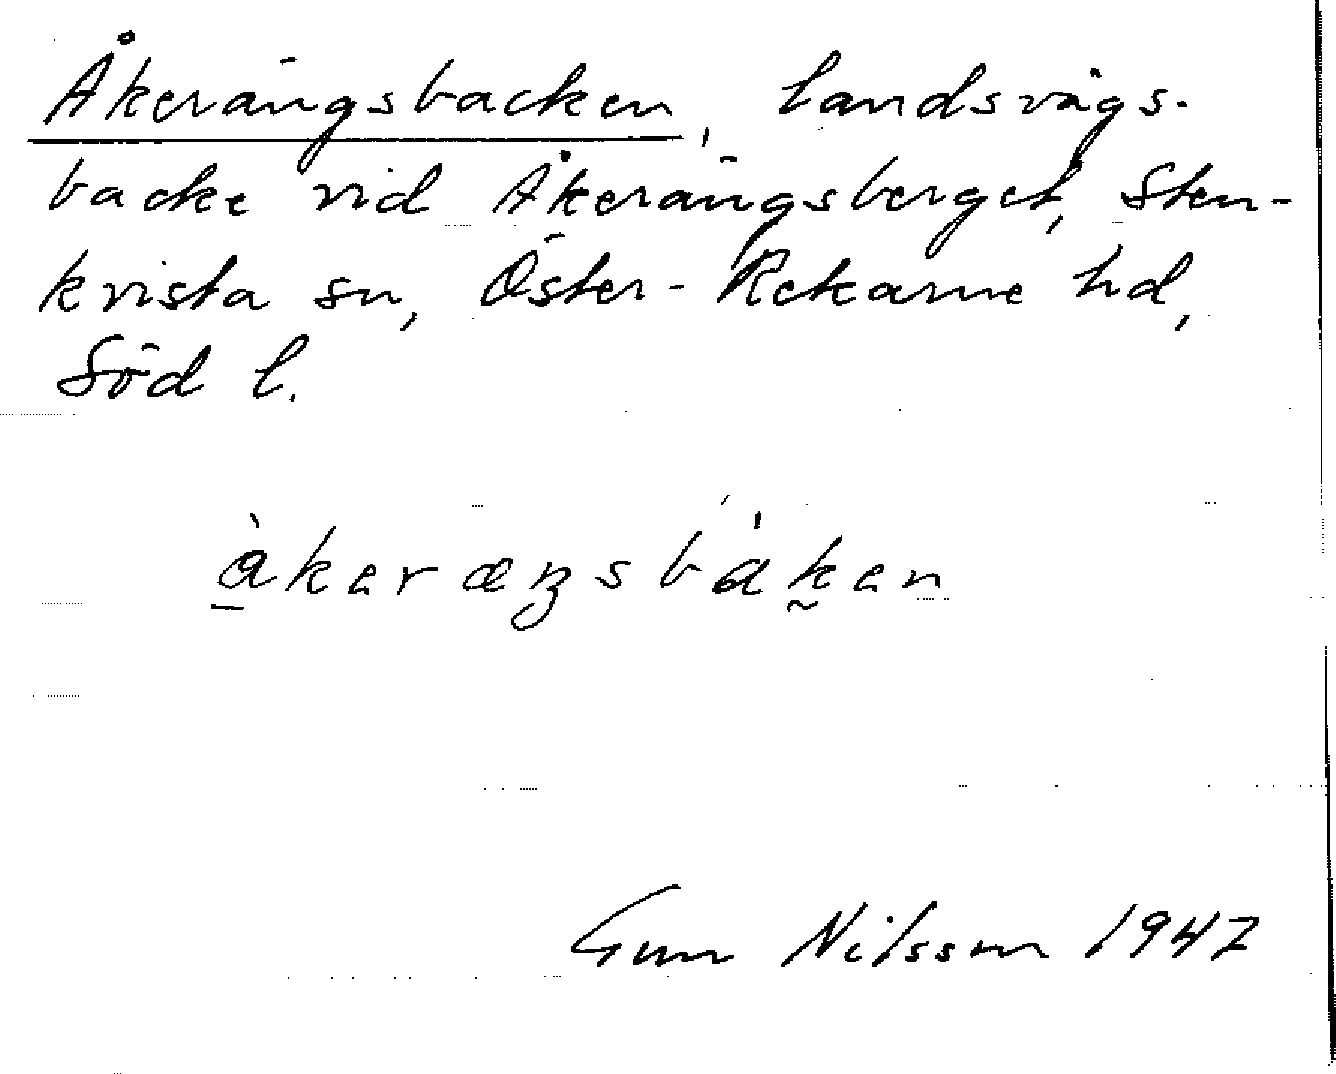 Åkerängsbacken, landsvägs-
backe vid Åkerängsberget, Sten-
kvista sn, Öster-Rekarne hd,
Söd l.
å̀keræŋsbák̰en
Gun Nilsson 1947